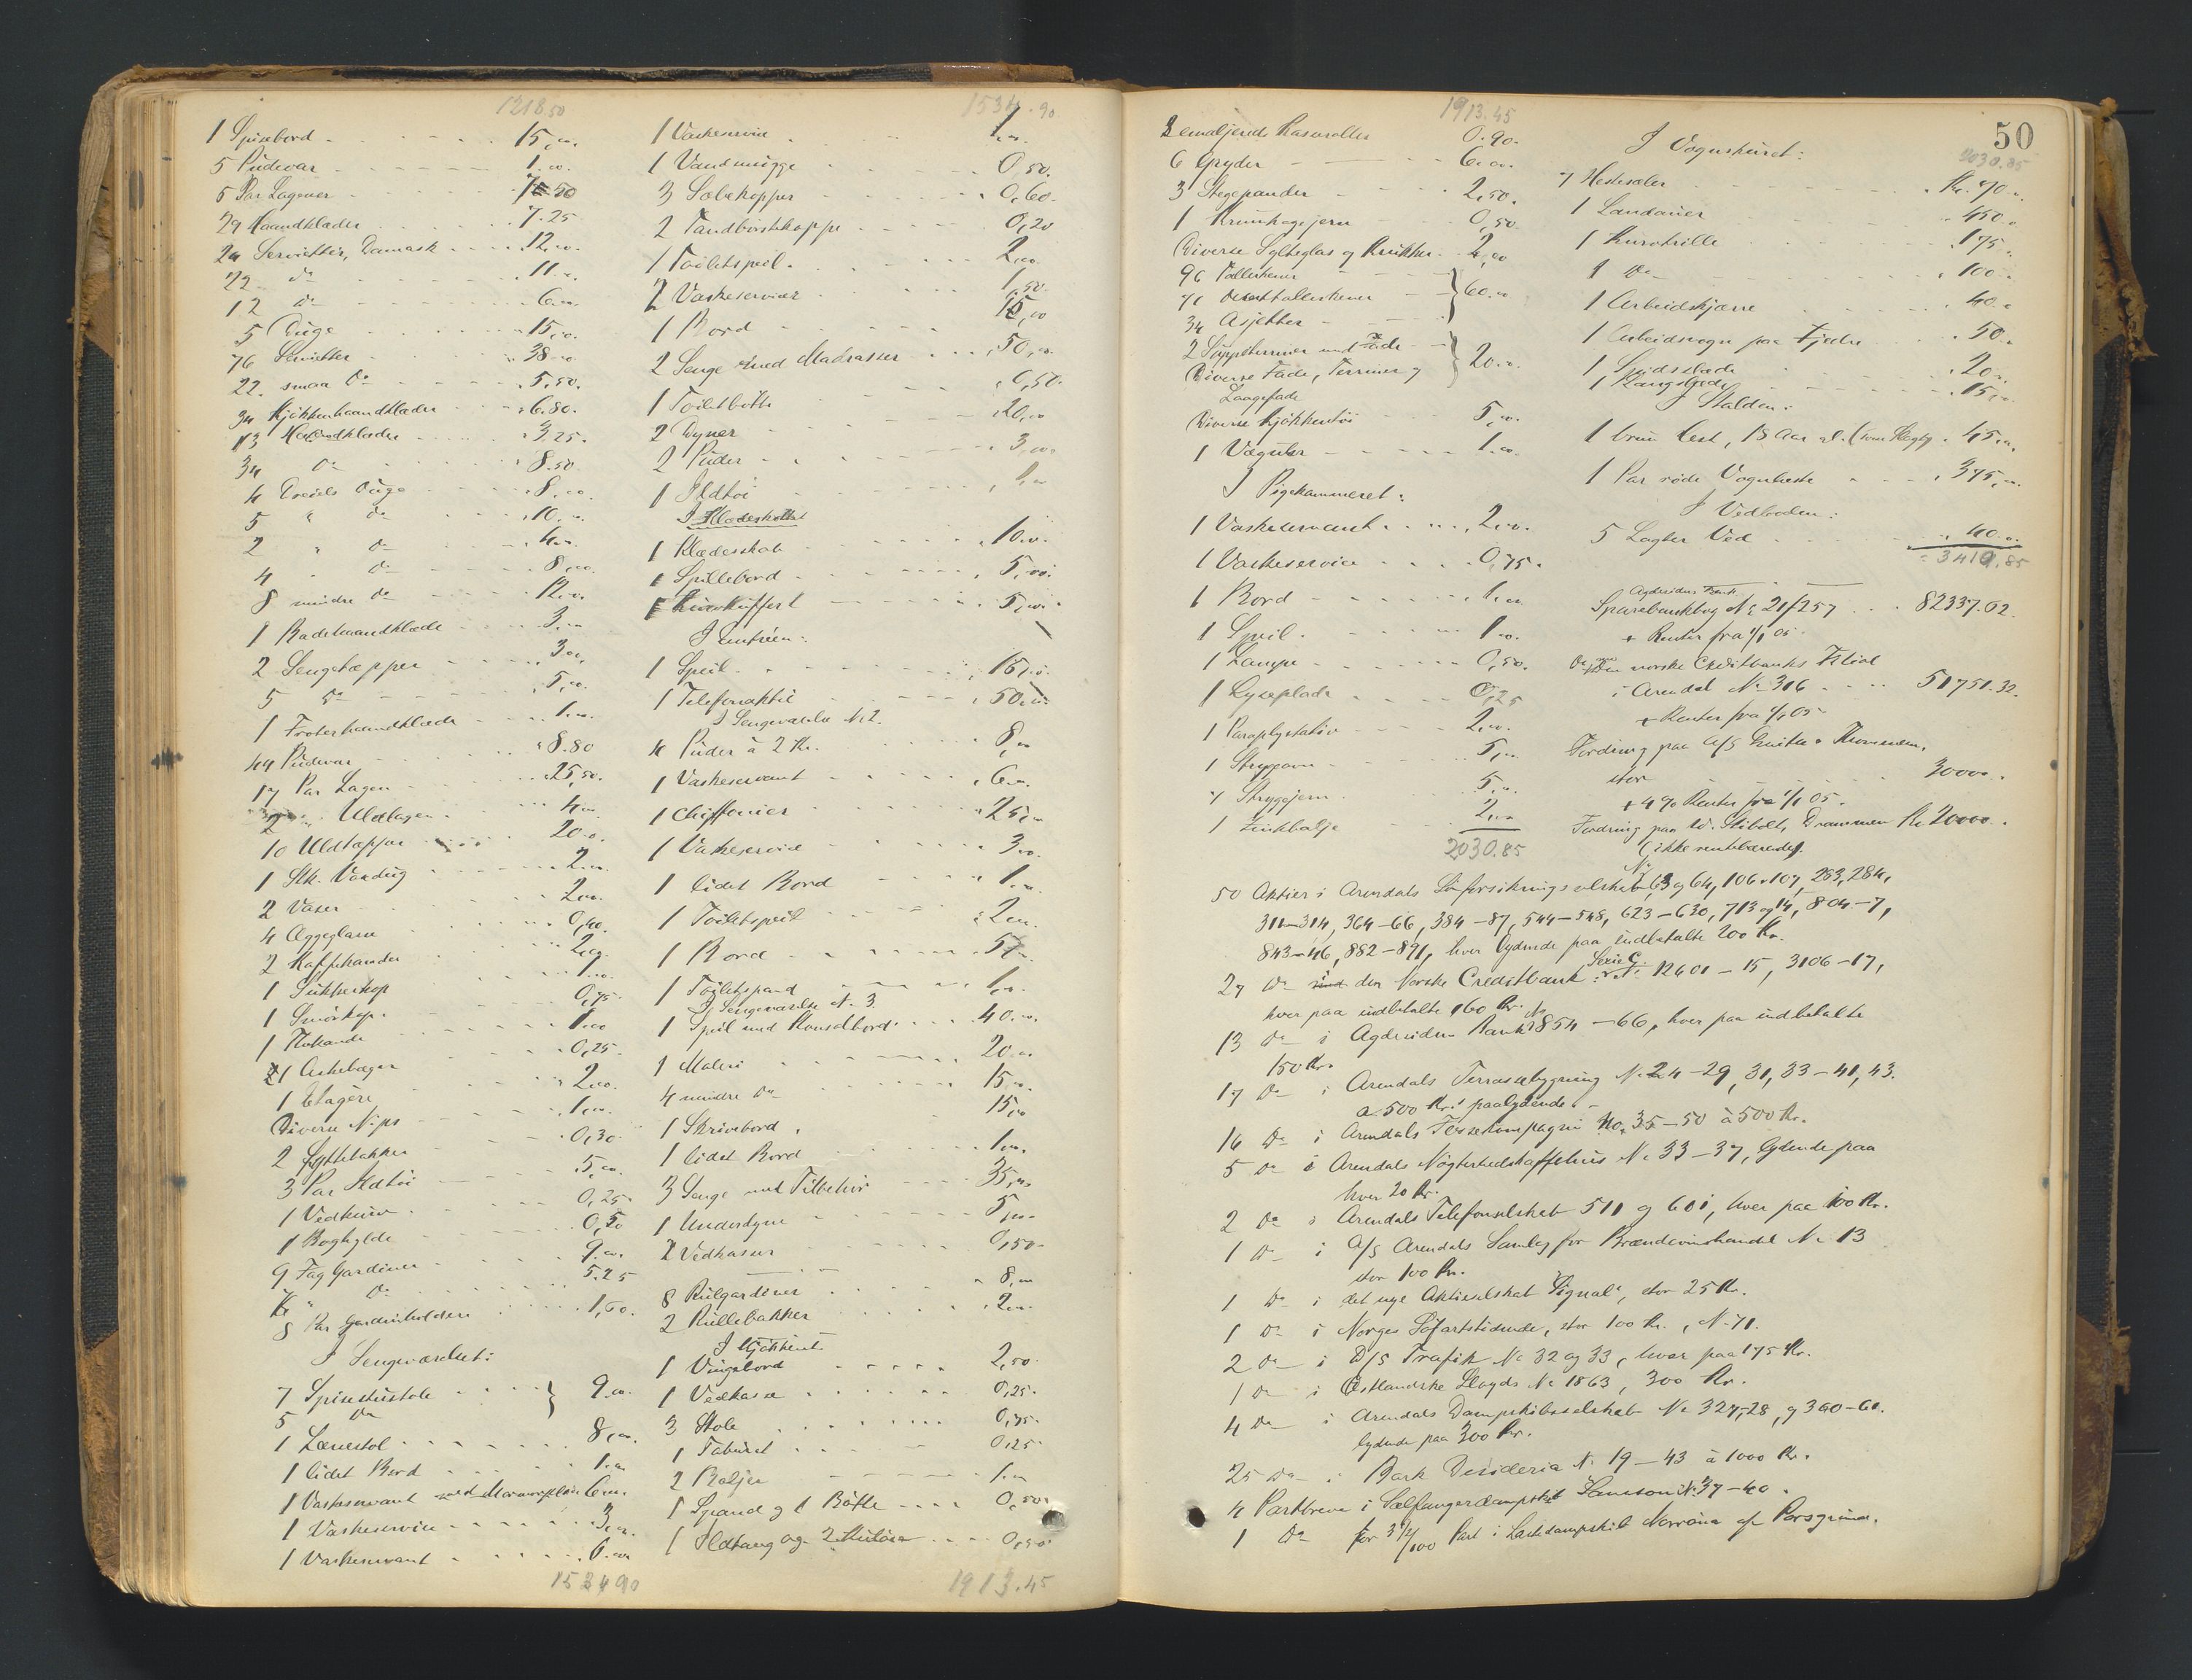 1218.50
1 Spisebord - 15,00.
5 Pudevar - 1.00.
5 Par Lagener - 7.50
29 Haandklæder - 7.25
24 Servietter, Damask - 12.00.
22 do - 11.00
12 do - 6.00
5 Duge - 15,00.
76 Servietter - 38.00
22 smaa do - 5.50.
34 Kjøkkenhaandklæder - 6.80.
13 Haandklæder - 3.25.
34 do - 8.50
4 Dreiels Duge - 8.00.
5 " do - 10.00
2 " do - 4.00
4 " do - 8,00.
8 mindre do - 12.00.
1 Badehaandklæde - 3.00
2 Sengetæpper - 3.00,
5 do - 5,00.
1 Froterhaandklæde - 1.00.
44 Pudevar - 8.80
17 Par Lagen - 25,50.
2 Uldlagen - 4.00
10 Uldtæpper - 20.00
1 Stk. Voxdug - 2.00.
2 Vaser - 2.00.
4 Æggeglass - 0,40.
2 Kaffekander - 2.00.
1 Sukkerkop - 1.00.
1 Smørkop - 0,75.
1 Thekande - 1.00
1 Askebæger - 0,25.
1 Etagère - 2.00.
Diverse Nips - 1,00.
2 Syltelakker - 0,30.
3 Par Ildtøi - 5,00.
1 Vedkurv - 0,25.
1 Boghylde - 0,50
9 Fag Gardiner - 9.00.
" do - 5.25
8 Par Gardinholdere - 1,60.
I Sengeværelset:
7 Spisestustole } 9.00.
5 do
1 Lænestol - 8,00.
1 lidet Bord - 1.00
1 Vaskeservant med Marmorplade 6.00.
1 Vaskeservice - 3,00.
1 Vaskeservant - 6.00
1534 90
1534.90
1 Vaskeservice - 1.00.
1 Vandmugge - 0,50.
3 Sæbekopper - 0,60.
2 Tandbørstekoppe - 0,20
1 Toiletspeil - 2,00.
2 Vaskeservicer - 1,50.
1 Bord - 15,00
2 Senge med Madrasser - 50,00.
1 Toiletbøtte - 0,50.
2 Dyner - 20,00
2 Puder - 3,00.
1 Ildtøi - 1,00
I Klædeskottet
1 Klædesskab - 10.00.
1 Spillebord - 5,00.
1 - 5,00.
I Entréen:
1 Speil - 15,00.
1 Telefonaktie - 50,00.
I Sengeværelse No 2.
4 Puder à 2 Kr. - 8,00
1 Vaskeservant - 6.00.
1 Chiffonier - 25,00
1 Vaskeservice - 3.00.
1 lidet Bord - 1.00.
1 Toiletspeil - 2.00.
1 Bord - 5,00.
1 Toiletspand - 1,00.
I Sengeværelse No 3.
1 Speil med Konsolbord - 40.00.
1 Maleri - 20.00
4 mindre do - 15,00.
1 Skrivebord - 15,00
1 lidet Bord - 1.00.
3 Senge med Tilbehør - 35,00
1 Underdyne - 5,00.
2 Vedkasser - 0,50.
8 Rulgardiner - 8,00
2 Rullebakker - 2.00.
I Kjøkkenet
1 Vingebord - 2,50.
1 Vedkasse - 0,25.
3 Stole - 0,75.
1 Taburet - 0,25.
2 Baljer - 1.00
1 Spand og 1 Bøtte - 0,50.
1 Ildtang og 2 - 0,50.
1913.45
1913.45
2 emaljerede Kasseroller 0.90.
6 Gryder - 6.00.
3 Stegepander - 2,50.
1 Krumkagejern - 0,50
Diverse Sylteglas og Krukker - 2,00
96 Tallerkener
71 deserttallerkener } 60.00
34 Asjetter
2 Suppeterriner med Fade
Diverse Fade, Terriner og } 20.00.
Laagefade
Diverse Kjøkkentøi - 5,00.
1 Væguhr - 1.00.
I Pigekammeret:
1 Vaskeservant - 2,00.
1 Vaskeservice - 0,75.
1 Bord - 1.00
1 Speil - 1.00.
1 Lampe - 0,50.
1 Lyseplade - 0,25
1 Paraplystativ - 2,00.
1 Strygeovn - 5,00
7 Strygejern - 5.00.
1 Zinkbalje - 2,00
2030.85
50
I Vognhuset:
2030.85
7 Hesteseler - Kr. 70.00
1 Landauer - 450.00
1 Kurvtrille - 175.00
1 do - 100.00
1 Arbeidskjærre - 40.00
1 Arbeidsvogn paa Fjedre - 50.00
1 Spidsslæde - 20.00
1 Langslæde - 15,00
I Stalden:
1 brun Hest, 18 Aar gl. 45.00.
1 Par røde Vognheste - 375,00.
I Vedboden:
5 Lagter Ved - 40.00.
3410.85
Agdesidens Bank
Sparebankbog No 21/257 - 82337.02.
+ Renter fra 1/1 05.
Do den norske Creditbanks Filial
i Arendal No 316 - 51751.32.
+ Renter fra 1/1 05
Fordring paa A/S Thommesen,
stor - 30000.
+ 4 % Renter fra 1/1 05.
Fordring paa W. Stibolt, Drammen Kr 20000.
(ikke rentebærende).
50 Aktier i Arendals Søforsikringsselskab, No 63 og 64, 106-107, 283, 284,
311-314, 364-66, 384-87, 544-548, 623-630, 713 og 14, 804-7,
843-46, 882-891, hver lydende paa indbetalte 200 Kr.
27 do i den Norske Creditbank: Serie C. No. 12601-15, 3106-17,
hver paa indbetalte 160 Kr.
13 do i Agdesidens Bank No 854-66, hver paa indbetalte
150 Kr.
17 do i Arendals Terrassebygning No 24-29, 31, 33-41, 43.
a 500 Kr. paalydende.
16 do i Arendals Fossekompagni No. 35-50 à 500 Kr.
5 do i Arendals Nøgterhedskaffehus No 33-37, lydende paa
hver 20 Kr.
2 do i Arendals Telefonselskab 511 og 601, hver paa 100 Kr.
1 do i A/S Arendals Samlag for Brændevinshandel No 13
stor 100 Kr.
1 do i det nye Aktieselskab "Signal", stor 25 Kr.
1 do i Norges Søfartstidende, stor 100 Kr., No 71.
2 do i D/S Trafik No 32 og 33, hver paa 175 Kr.
1 do i Østlandske Lloyds No 1863, 300 Kr.
4 do i Arendals Dampskibsselskab No 327-28, og 360-61.
lydende paa 300 Kr.
25 do i Bark Desideria No 19-43 à 1000 Kr.
4 Partbreve i Sælfangerdampskib Samson No 37-40.
1 do for 3 1/2/100 Part i Lastedampskib Norröna af Porsgrund.